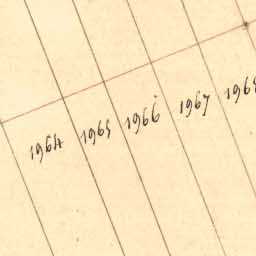 1964 1965 1966 1967